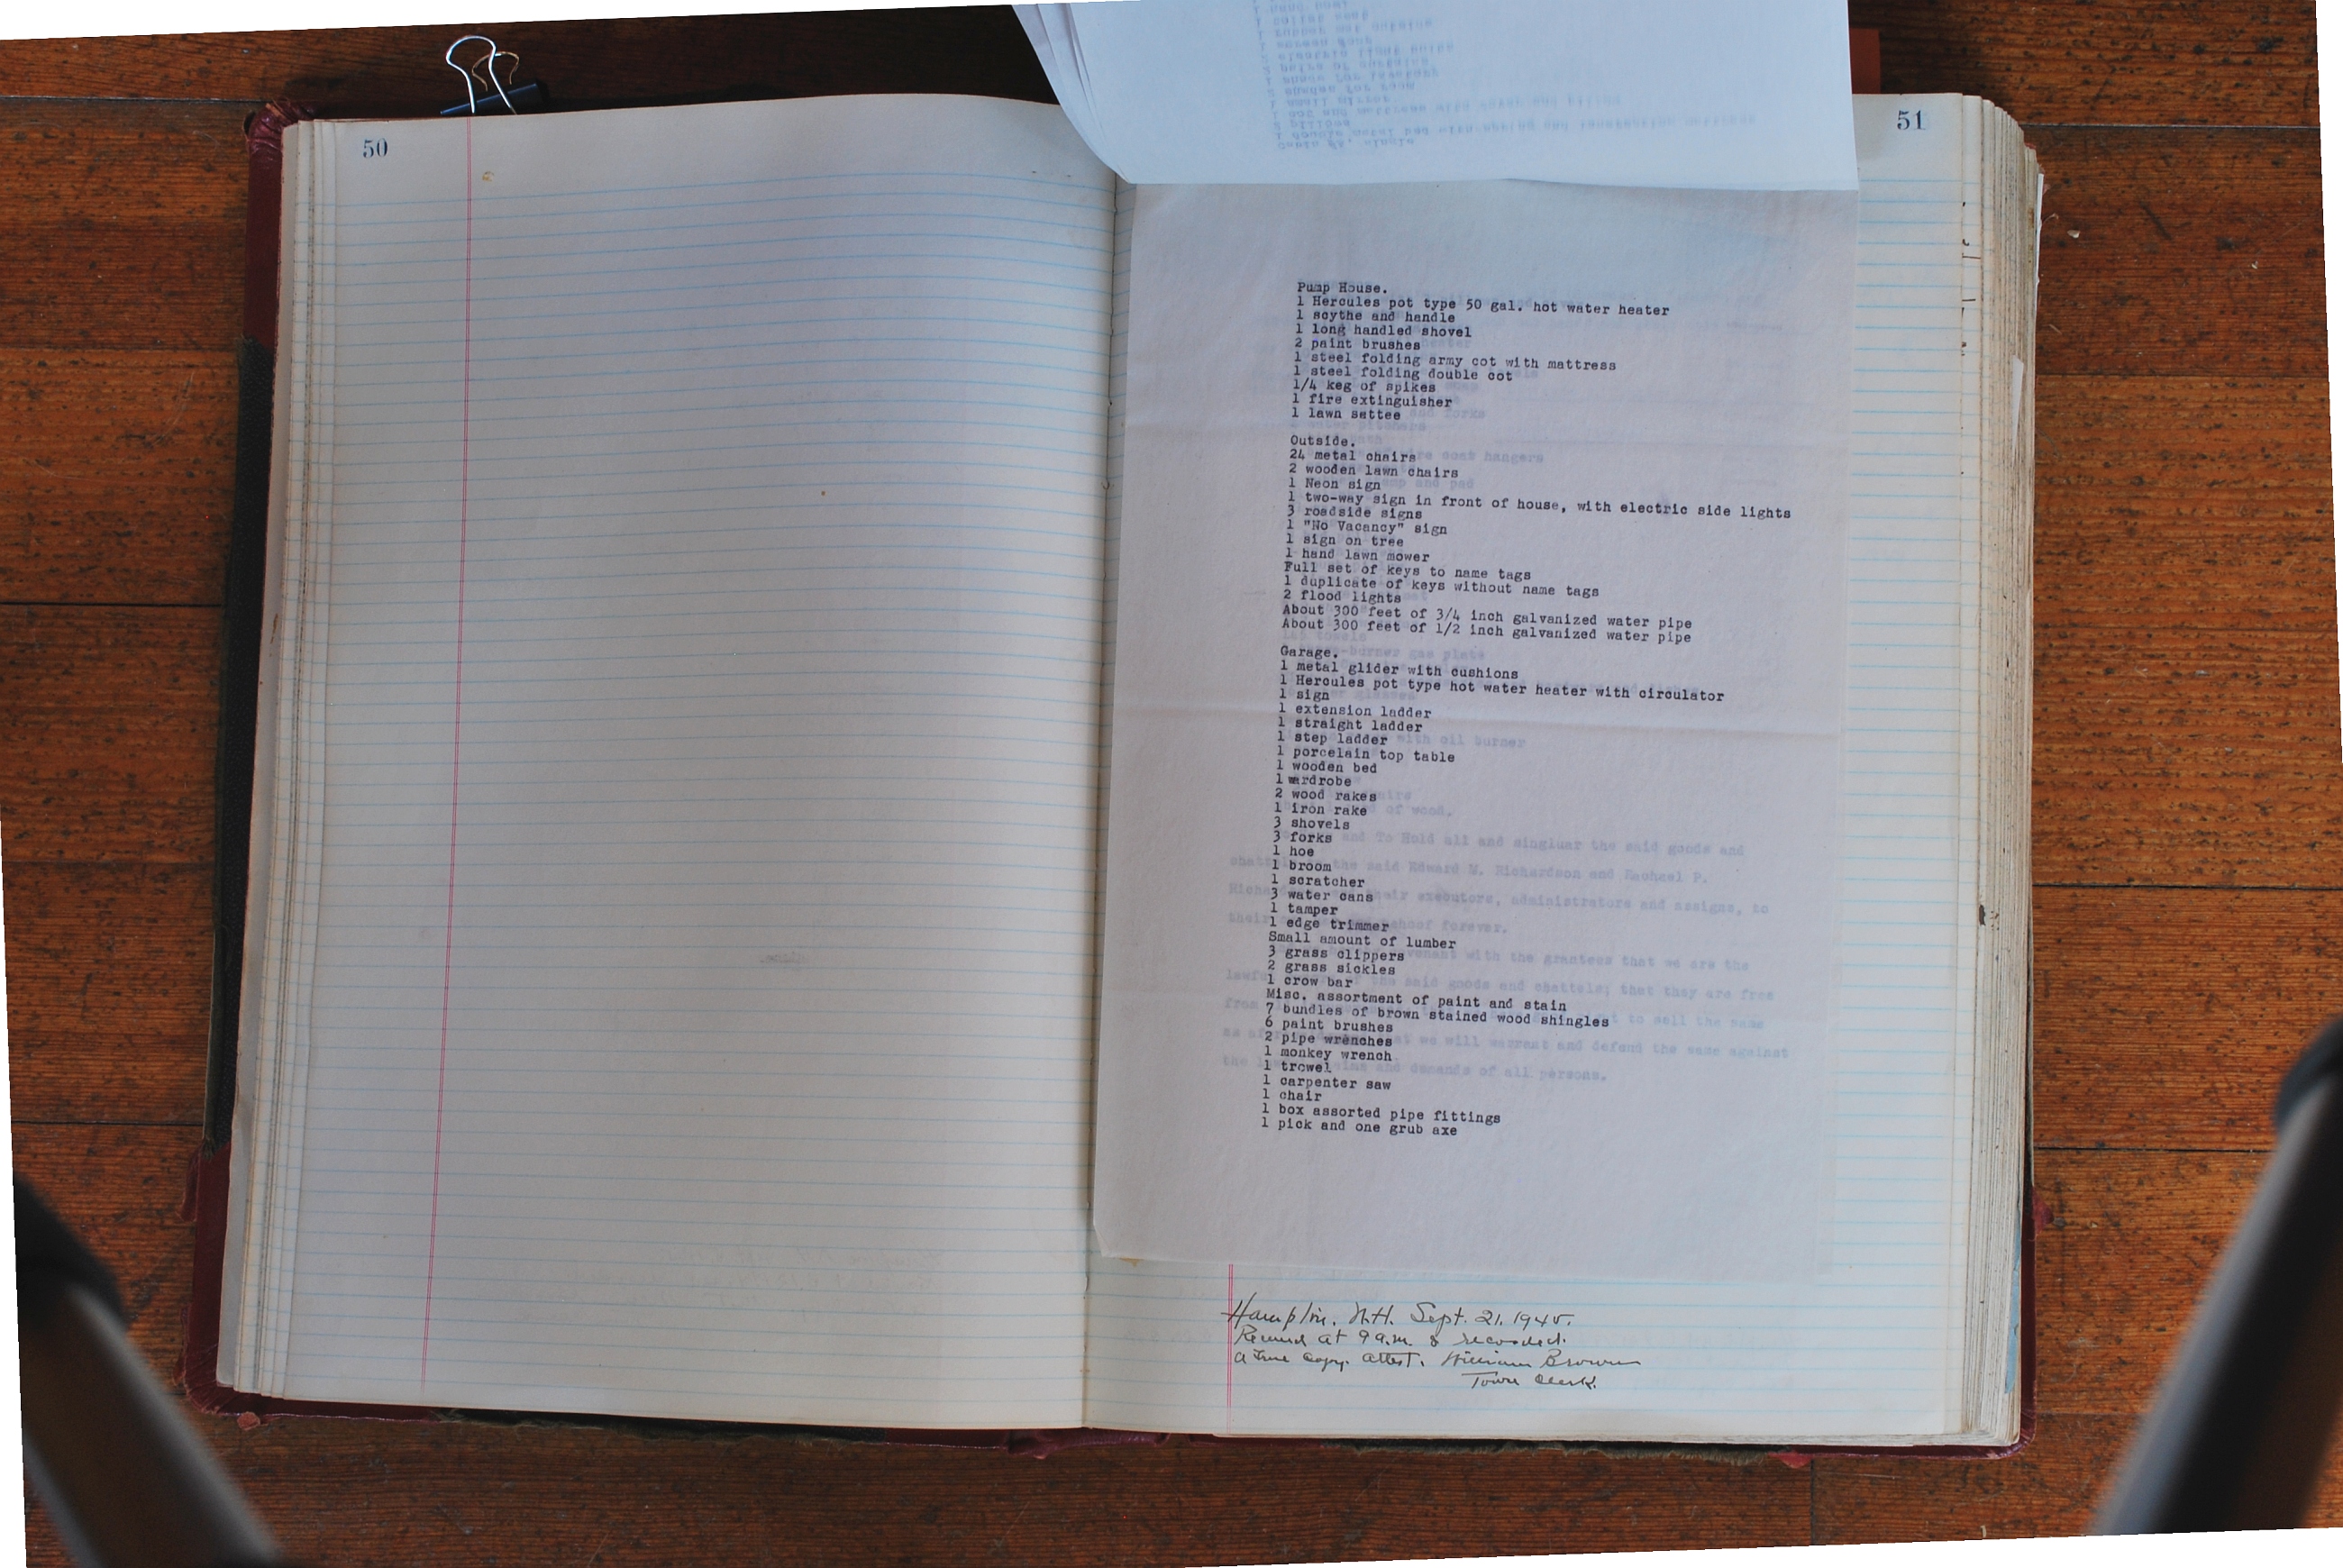 50
51
Pump House.
1 Hercules pot type 50 gal. hot water heater
1 scythe and handle
1 long handled shovel
2 paint brushes
1 steel folding army cot with mattress
1 steel folding double cot
1/4 keg of spikes
1 fire extinguisher
1 lawn settee
Outside.
24 metal chairs
2 wooden lawn chairs
1 Neon sign
1 two-way sign in front of house, with electric side lights
3 roadside signs
1 "No Vacancy" sign
1 sign on tree
1 hand lawn mower
Full set of keys to name tags
1 duplicate of keys without name tags
2 flood lights
About 300 feet of 3/4 inch galvanized water pipe
About 300 feet of 1/2 inch galvanized water pipe
Garage.
1 metal glider with cushions
1 Hercules pot type hot water heater with circulator
1 sign
1 extension ladder
1 straight ladder
1 step ladder
1 porcelain top table
1 wooden bed
1 wardrobe
2 wood rakes
1 iron rake
3 shovels
3 forks
1 hoe
1 broom
1 scratcher
3 water cans
1 tamper
1 edge trimmer
Small amount of lumber
3 grass clippers
2 grass sickles
1 crow bar
Misc. assortment of paint and stain
7 bundles of brown stained wood shingles
6 paint brushes
2 pipe wrenches
1 monkey wrench
1 trowel
1 carpenter saw
1 chair
1 box assorted pipe fittings
1 pick and one grub axe
Hampton. N.H. Sept. 21. 1945.
Received at 9 a.m. & recorded.
A true copy. Attest. William Brown
Town Clerk.